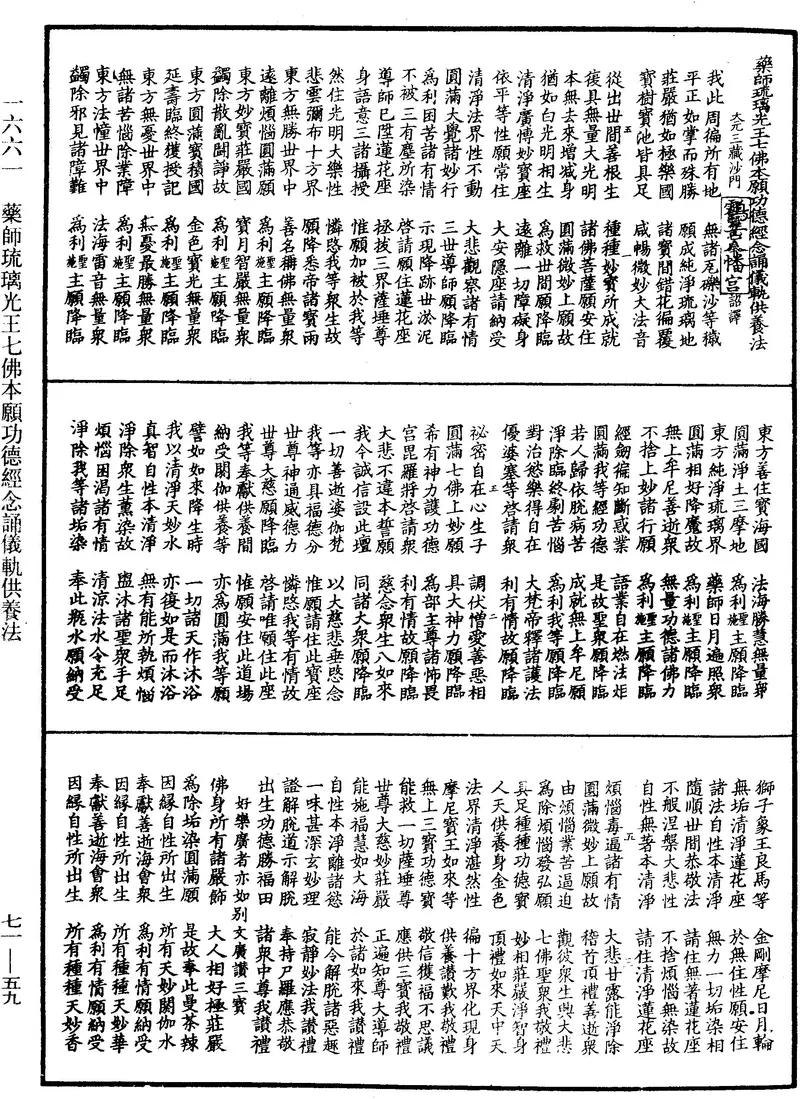 藥師琉璃光王七佛本願功德經念誦儀軌供養法
大元三藏沙門
詔譯
我此周徧所有地　無諸瓦礫沙等穢
平正如掌而殊勝　願成純淨琉璃地
莊嚴猶如極樂國　諸寶間錯花徧覆
寶樹寶池皆具足　咸暢微妙大法音
五　一
從出世間善根生　種種妙寶所成就
復具無量大光明　諸佛菩薩願安住
本無去來增減身　圓滿微妙上願故
猶如白光明相生　為救世間願降臨
清淨廣博妙寶座　遠離一切障礙身
依平等性願常住　大安隱座請納受
清淨法界性不動　大悲觀察諸有情
圓滿大覺諸妙行　三世導師願降臨
為利困苦諸有情　示現降跡世淤泥
不被三有塵所染　啓請願住蓮花座
導師已陞蓮花座　拯拔三界薩埵尊
身語意三諸攝授　惟願加被於我等
然住光明大樂性　憐愍我等衆生故
悲雲彌布十方界　願降悉帝諸寶雨
東方無勝世界中　善名稱佛無量衆
遠離煩惱圓滿願　為利聖施主願降臨
東方妙寶莊嚴國　寶月智嚴無量衆
蠲除散亂鬪諍故　為利聖施主願降臨
東方圓滿寶積國　金色寶光無量衆
延壽臨終獲授記　為利聖施主願降臨
東方無憂世界中　無憂最勝無量衆
無諸苦惱除業障　為利聖施主願降臨
東方法幢世界中　法海雷音無量衆
蠲除邪見諸障難　為利聖施主願降臨
東方善住寶海國　法海勝慧無量衆
圓滿淨土三摩地　為利聖施主願降臨
東方純淨琉璃界　藥師日月遍照衆
圓滿相好降魔故　為利聖施主願降臨
無上牟尼善逝衆　無量功德諸佛力
不捨上妙諸行願　為利聖施主願降臨
經劒徧知斷惑業　語業自在燃法炬
圓滿我等經功德　是故聖衆願降臨
若人歸依脫病苦　成就無上牟尼願
淨除臨終劇苦惱　為利我等願降臨
對治慾樂得自在　大梵帝釋諸護法
優婆塞等啓請衆　利有情故願降臨
五　二
祕密自在心生子　調伏憎愛善惡相
圓滿七佛上妙願　具大神力願降臨
希有神力護功德　為部主尊諸怖畏
宮毘羅將啓請衆　利有情故願降臨
大悲不違本誓願　慈念衆生八如來
我今誠信設此壇　同諸大衆願降臨
一切善逝婆伽梵　以大慈悲垂愍念
我等亦具福德分　惟願請住此寶座
世尊神通威德力　憐愍我等有情故
世尊大慈願降臨　啓請唯願住此座
我等奉獻供養間　惟願安住此道場
納受閼伽供養等　亦為圓滿我等願
譬如如來降生時　一切諸天作沐浴
我以清淨天妙水　亦復如是而沐浴
真智自性本清淨　無有能所執煩惱
淨除衆生薰染故　盥沐諸聖衆手足
煩惱困渴諸有情　清涼法水令充足
淨除我等諸垢染　奉此瓶水願納受
獅子象王良馬等　金剛摩尼日月輪
無垢清淨蓮花座　於無住性願安住
諸法自性本清淨　無力一切垢染相
隨順世間恭敬法　請住無著蓮花座
不般涅槃大悲性　不捨煩惱要垢故
自性無著本清淨　請住清淨蓮花座
五
煩惱毒逼諸有情　大悲甘露能淨除
圓滿微妙上願故　稽首頂禮善逝衆
由煩惱業苦逼迫　觀彼衆生興大悲
為除煩惱發弘願　七佛聖衆我敬禮
具足種種功德寶　妙相莊嚴淨智身
人天供養身金色　頂禮如來天中天
法界清淨湛然性　徧十方界化現身
摩尼寶王如來等　供養讚歎我敬禮
無上三寶功德寶　敬信獲福不思議
能救一切薩埵尊　應供三寶我敬禮
世尊大慈妙莊嚴　正遍知尊大導師
能施福慧如大海　於諸如來我讚禮
自性本淨離諸慾　能令解脫諸惡趣
一味甚深玄妙理　寂靜妙法我讚禮
證解脫道示解脫　奉持尸羅應恭敬
出生功德勝福田　諸衆中尊我讚禮
好樂廣者亦如別文廣讚三寶
佛身所有諸嚴飾　大人相好極莊嚴
為除垢染圓滿願　是故奉此曼荼辣
因緣自性所出生　所有天妙閼伽水
奉獻善逝海會衆　為利有情願納受
因緣自性所出生　所有種種天妙華
奉獻善逝海會衆　為利有情願納受
因緣自性所出生　所有種種天妙香
一六六一　藥師琉璃光王七佛本願功德經念誦儀軌供養法
七一—五九